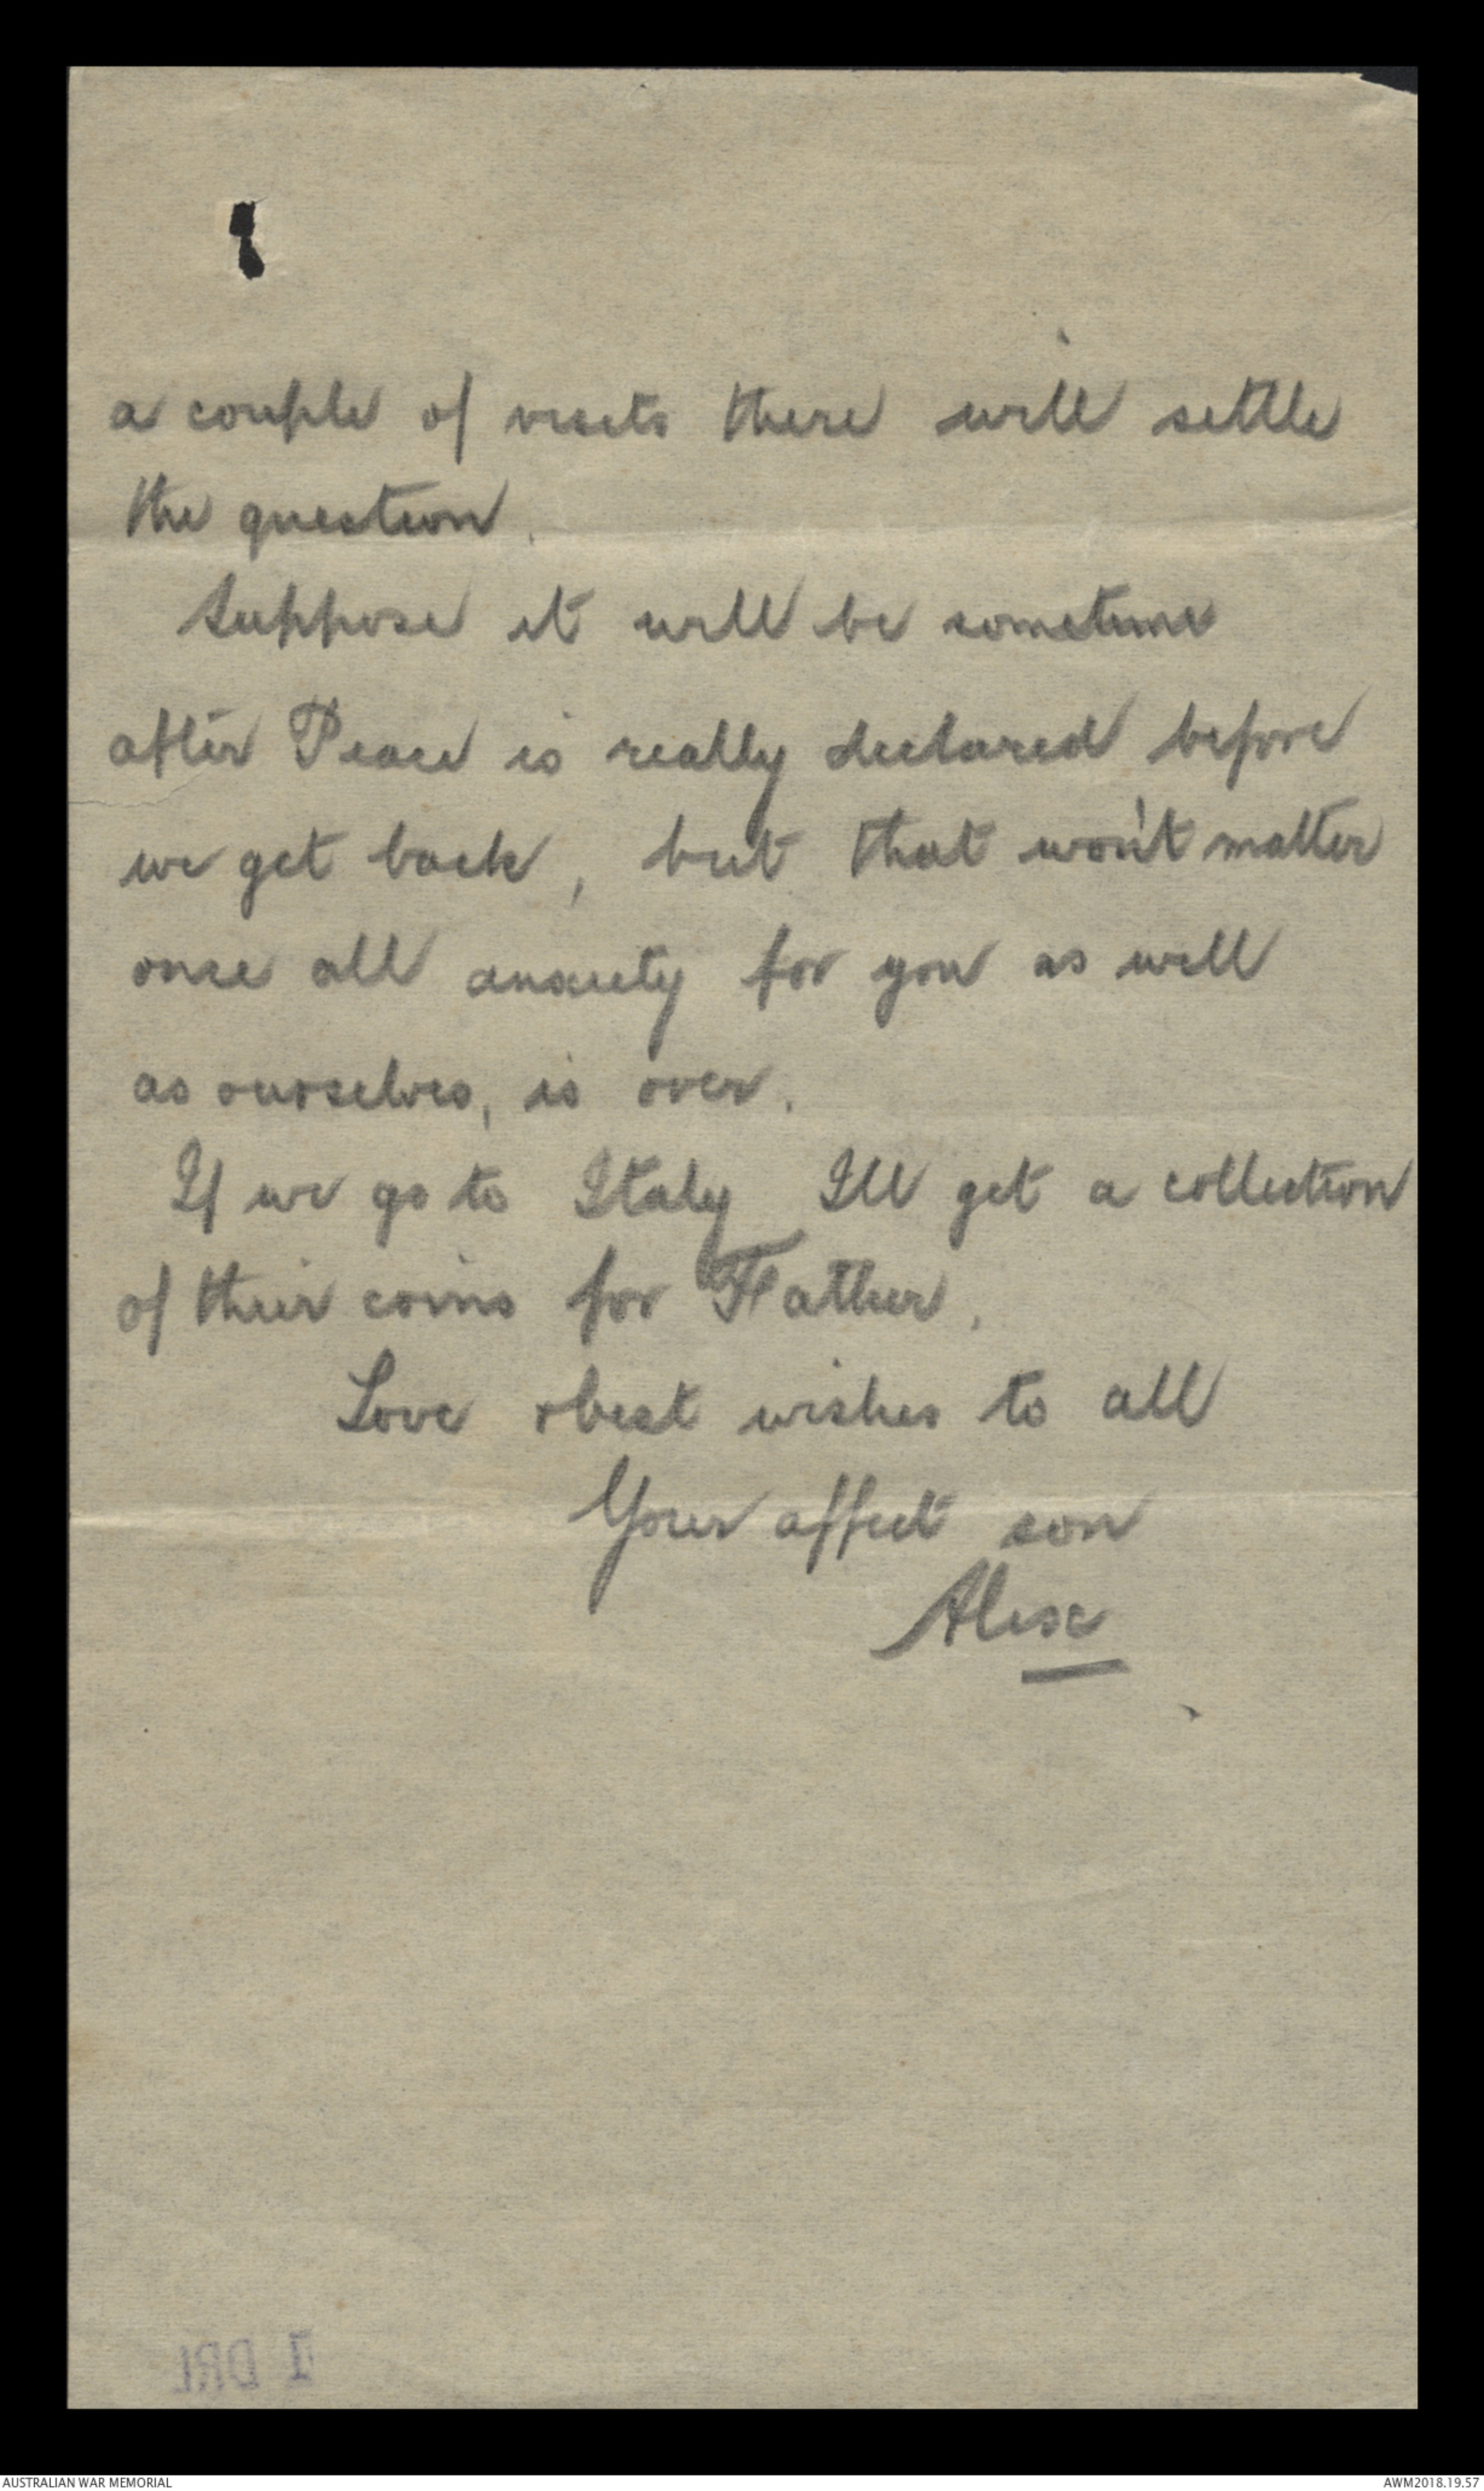 a couple of visits there will settle
the question.
Suppose it will be sometime
after Peace is really declared before
we get back, but that won't matter
once all anxiety for you as well
as ourselves, is over.
If we go to Italy I'll get a collection
of their coins for Father.
Love & best wishes to all
Your affect son
Alex
1 DRL
AUSTRALIAN WAR MEMORIAL
AWM2018.19.57